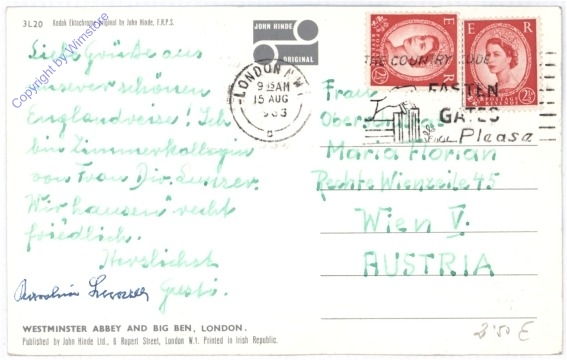 3L20 Kodak Ektachrome Original by John Hinde, F.R.P.S.
JOHN HINDE
ORIGINAL
Copyright by Wimstore
Liebe Grüße aus
unserer schönen
Englandreise! Ich
bin Zimmerkollegin
von Frau Dir.
Wir "hausen" recht
friedlich.
Herzlichst
Gusti.
LONDON N.W.
9 15AM
15 AUG
1963
THE COUNTRY CODE
FASTEN
GATES
Please
E R
E R
2½D
Frau
Maria Florian
Rechte Wienzeile 45
Wien V.
AUSTRIA
WESTMINSTER ABBEY AND BIG BEN, LONDON.
Published by John Hinde Ltd., 6 Rupert Street, London W.1. Printed in Irish Republic.
2'50 E